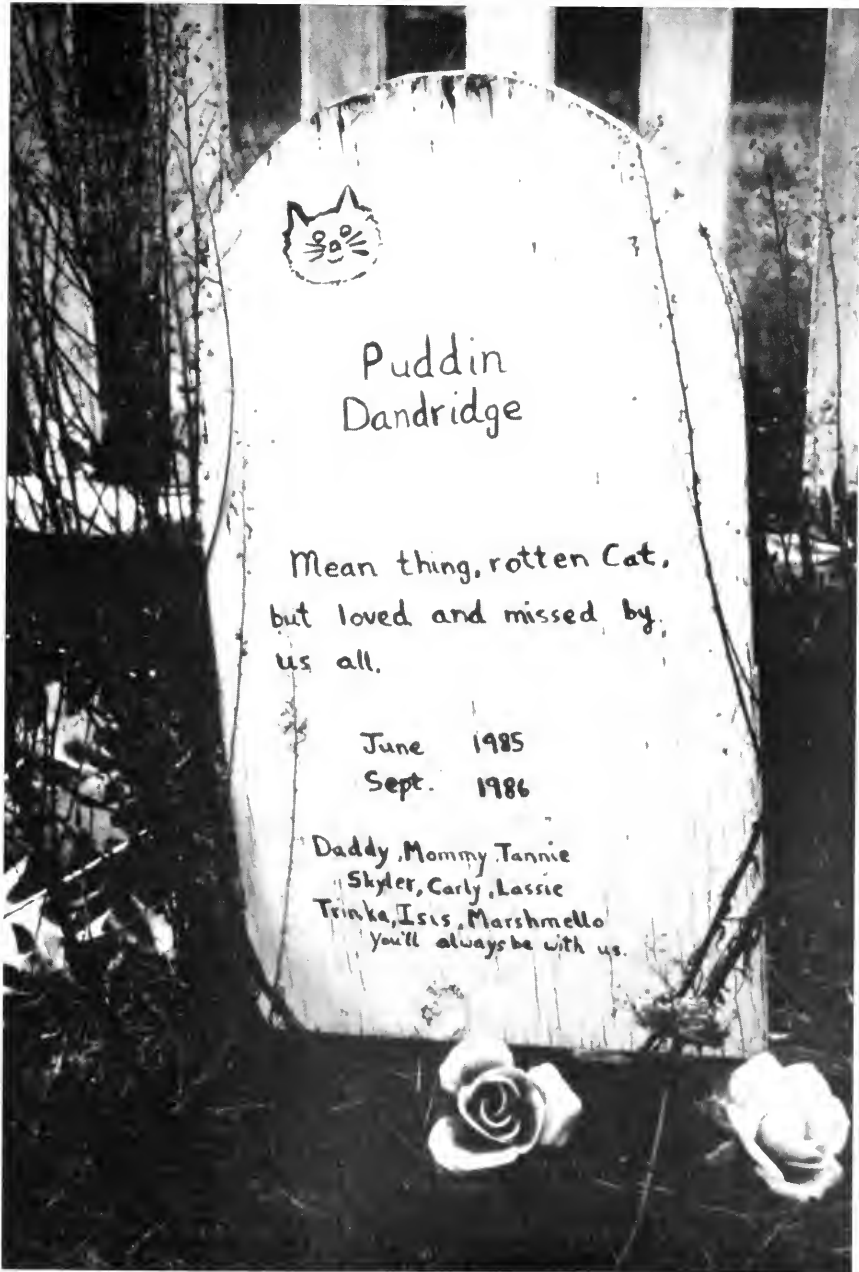 Puddin
Dandridge
Mean thing, rotten Cat,
but loved and missed by
us all.
June 1985
Sept. 1986
Daddy, Mommy, Tannie
Skyler, Carly, Lassie
Trinka, Isis, Marshmello
You'll always be with us.